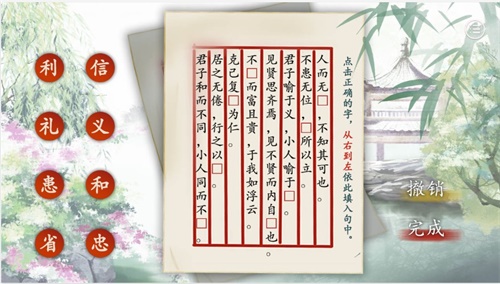 点击正确的字，从右到左依此填入句中。
人而无□，不知其可也。
不患无位，□所以立。
君子喻于义，小人喻于□。
见贤思齐焉，见不贤而内自□也。
不□而富且贵，于我如浮云。
克己复□为仁。
居之无倦，行之以□。
君子和而不同，小人同而不□。
利 信
礼 义
患 和
省 忠
撤销
完成